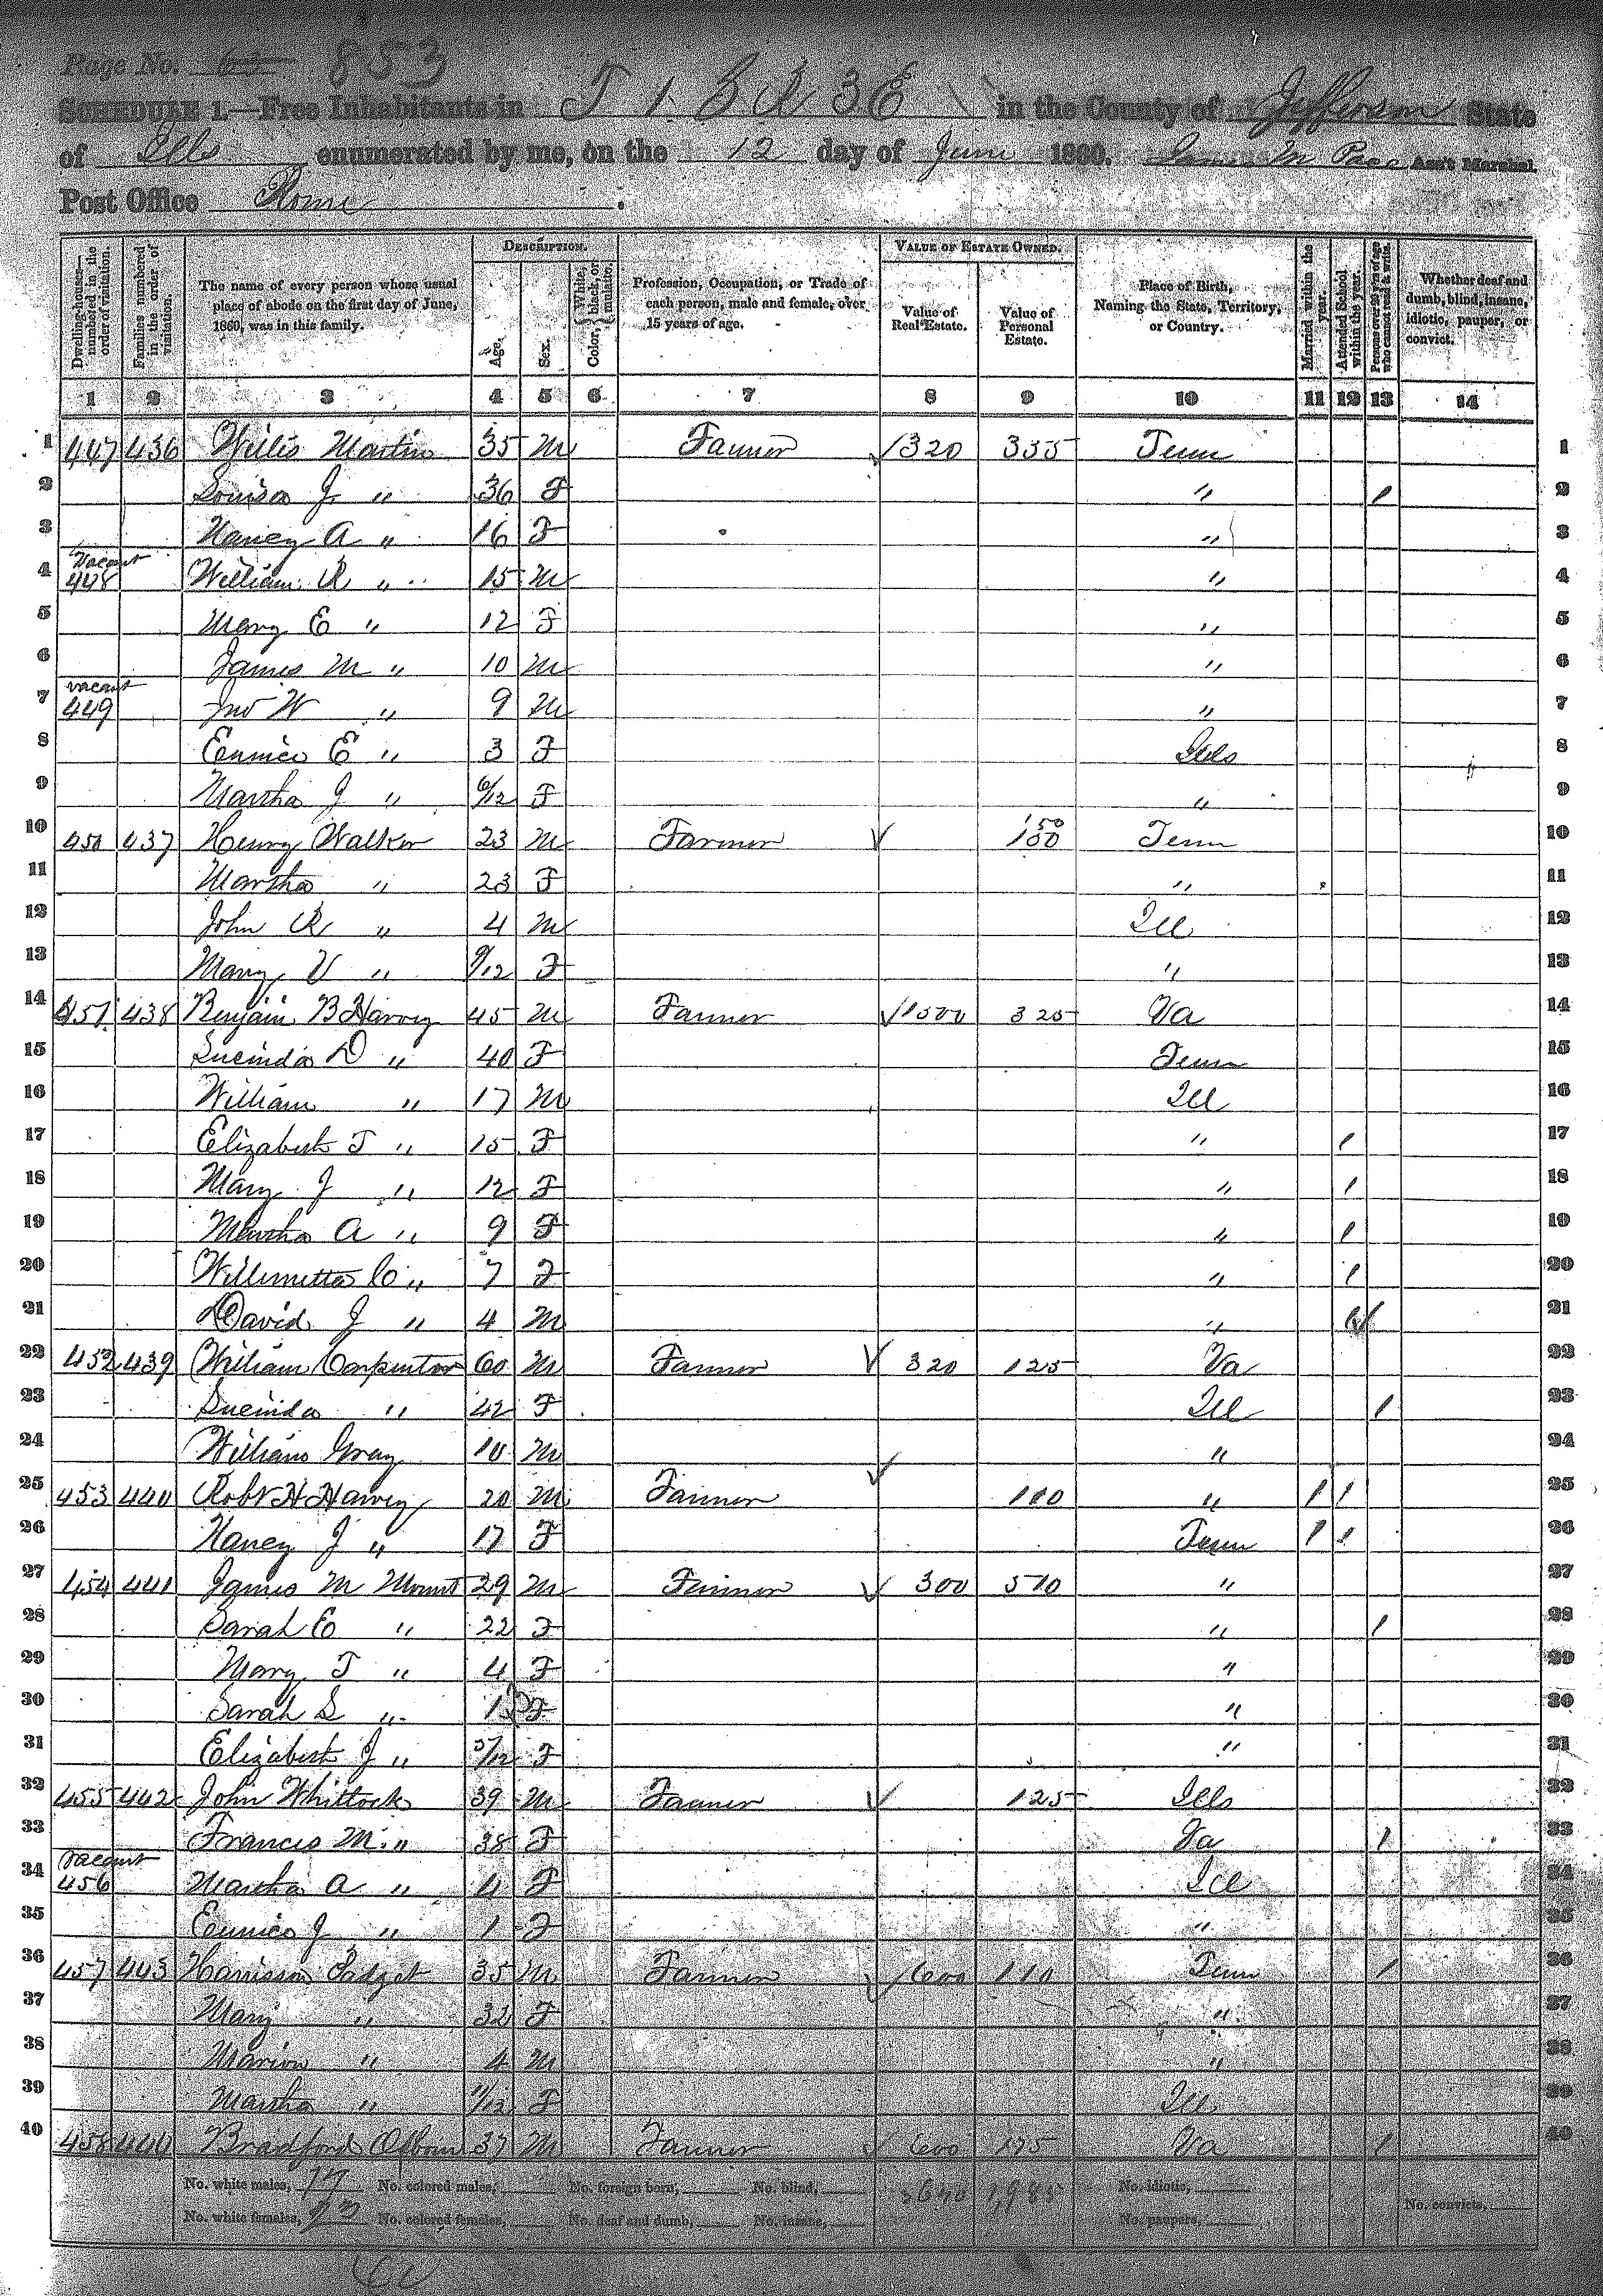 Page No. 853
SCHEDULE 1.—Free Inhabitants in T 1 S R 3 E in the County of Jefferson State
of Ills enumerated by me, on the 12 day of June 1860. James M Pace Ass't Marshal.
Post Office Rome.
Dwelling-houses— numbered in the order of visitation. Families numbered in the order of visitation. The name of every person whose usual place of abode on the first day of June, 1860, was in this family. DESCRIPTION. Age. Sex. Color, { White, black, or mulatto. Profession, Occupation, or Trade of each person, male and female, over 15 years of age. VALUE OF ESTATE OWNED. Value of Real Estate. Value of Personal Estate. Place of Birth, Naming the State, Territory, or Country. Married within the year. Attended School within the year. Persons over 20 y'rs of age who cannot read & write. Whether deaf and dumb, blind, insane, idiotic, pauper, or convict.
1 2 3 4 5 6 7 8 9 10 11 12 13 14
1 447 436 Willis Martin 35 M Farmer 320 335 Tenn 1
2 Louisa J " 36 F " 1 2
3 Nancy A " 16 F " 3
4 Vacant 448 William R " 15 M " 4
5 Mary E " 12 F " 5
6 James M " 10 M " 6
7 vacant 449 Jno W " 9 M " 7
8 Eunice E " 3 F Ills 8
9 Martha J " 6/12 F " 9
10 450 437 Henry Walker 23 M Farmer 150 Tenn 10
11 Martha " 23 F " 11
12 John R " 4 M Ill 12
13 Mary V " 9/12 F " 13
14 451 438 Benjain B Harvey 45 M Farmer 1500 325 Va 14
15 Lucinda D " 40 F Tenn 15
16 William " 17 M Ill 16
17 Elizabeth T " 15 F " 1 17
18 Mary J " 12 F " 1 18
19 Martha A " 9 F " 1 19
20 Willimetta C " 7 F " 1 20
21 David J " 4 M " 21
22 452 439 William Carpenter 60 M Farmer 320 125 Va 22
23 Lucinda " 42 F Ill 1 23
24 William Gray 10 M " 24
25 453 440 Robt H Harvey 20 M Farmer 110 " 1 1 25
26 Nancy J " 17 F Tenn 1 1 26
27 454 441 James M Mount 29 M Farmer 300 510 " 27
28 Sarah E " 22 F " 1 28
29 Mary T " 4 F " 29
30 Sarah S " 1 F " 30
31 Elizabeth J " 5/12 F " 31
32 455 442 John Whitlock 39 M Farmer 125 Ills 32
33 Francis M " 38 F Va 1 33
34 Vacant 456 Martha A " 4 F Ill 34
35 Eunice J " 1 F " 35
36 457 443 Harrison Padget 35 M Farmer 600 110 Tenn 1 36
37 Mary " 32 F " 37
38 Marion " 4 M " 38
39 Martha " 11/12 F Ill 39
40 458 444 Bradford Osborn 37 M Farmer 600 175 Va 1 40
No. white males, 17 No. colored males, No. foreign born, No. blind, 3640 1,985 No. idiotic,
No. white females, 23 No. colored females, No. deaf and dumb, No. insane, No. paupers, No. convicts,